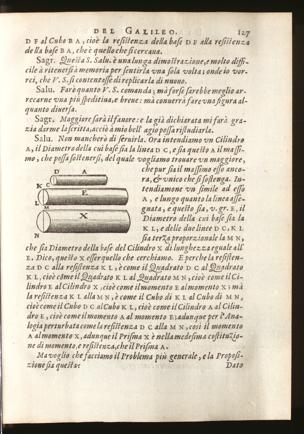 DEL GALILEO. 127
DF al Cubo BA; cioè la resistenza della base DF alla resistenza
della base BA, che è quello che si cercava.
Sagr. Questa S. Salu. è una lunga dimostrazione, e molto diffi-
cile à ritenersi à memoria per sentirla vna sola volta; onde io vor-
rei, che V. S. si contentasse di replicarla di nuouo.
Salu. Farò quanto V. S. comanda; mà forse sarebbe meglio ar-
recarne vna più speditiua, e breue: mà conuerrà fare vna figura al-
quanto diuersa.
Sagr. Maggiore sarà il fauore: e la già dichiarata mi farà gra-
zia darmela scritta, acciò à mio bell' agio possa ristudiarla.
Salu. Non mancherò di seruirla. Ora intendiamo vn Cilindro
A, il Diametro della cui base sia la linea DC, e sia questo A il massi-
mo, che possa sostenersi, del quale vogliamo trouare vn maggiore,
che pur sia il massimo esso anco-
ra, & vnico che si sostenga. In-
tendiamone vn simile ad esso
A, e lungo quanto la linea asse-
gnata, e questo sia, v. gr. E, il
Diametro della cui base sia la
KL, e delle due linee DC, KL
sia terza proporzionale la MN,
che sia Diametro della base del Cilindro X di lunghezza eguale all'
E. Dico, questo X esser quello che cerchiamo. E perche la resisten-
za DC alla resistenza KL, è come il Quadrato DC al Quadrato
KL, cioè come il Quadrato KL al Quadrato MN, cioè come il Ci-
lindro E al Cilindro X, cioè come il momento E al momento X; mà
la resistenza KL alla MN, è come il Cubo di KL al Cubo di MN,
cioè come il Cubo DC al Cubo KL, cioè come il Cilindro A al Cilin-
dro E, cioè come il momento A al momento E; adunque per l'Ana-
logia perturbata come la resistenza DC alla MN, così il momento
A al momento X, adunque il Prisma X è nella medesima costituzio-
ne di momento, e resistenza, che il Prisma A.
Ma voglio che facciamo il Problema più generale, e la Proposi-
zione sia questa:
Dato
D
A
C
K
E
L
M
X
N